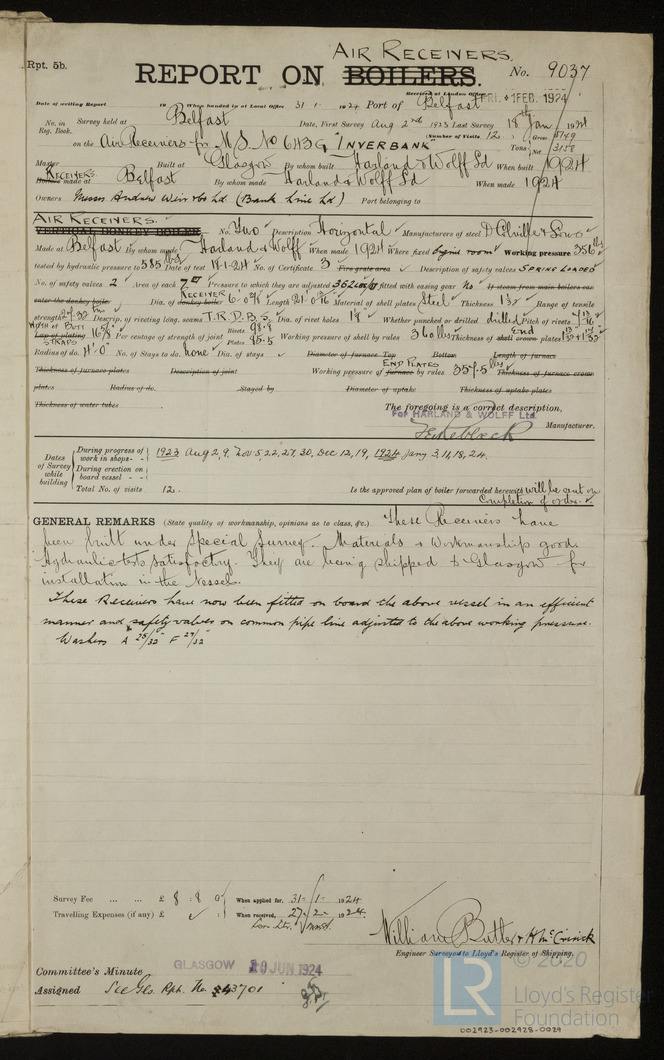 Rpt. 5b.
AIR RECEIVERS.
REPORT ON BOILERS. No. 9037
Received at London Office FRI. 1 FEB. 1924
Date of writing Report 19 When handed in at Local Office 31-1-1924 Port of Belfast
No. in Reg. Book. Survey held at Belfast Date, First Survey Aug 2nd 1923 Last Survey 18th Jan 1924
(Number of Visits 12.)
on the Air Receivers for M.S. No 643G "INVERBANK" Tons Gross 5149 Net 3158
Master Built at Glasgow By whom built Harland & Wolff Ld When built 1924
RECEIVERS
Boilers made at Belfast By whom made Harland & Wolff Ld When made 1924
Owners Messrs Andrew Weir & Co Ld (Bank Line Ld) Port belonging to
AIR RECEIVERS.
No. Two Description Horizontal Manufacturers of steel D. Colville & Sons
Made at Belfast By whom made Harland & Wolff When made 1924 Where fixed engine room Working pressure 356 lbs
tested by hydraulic pressure to 585 lbs Date of test 18-1-24 No. of Certificate 3 Fire grate area Description of safety valves SPRING LOADED
No. of safety valves 2 Area of each Pressure to which they are adjusted 362 If fitted with easing gear No If steam from main boilers can
enter the donkey boiler Dia. of donkey boiler RECEIVER Length Material of shell plates Steel Thickness Range of tensile
strength Descrip. of riveting long. seams T.R.D.B.S. Dia. of rivet holes Whether punched or drilled drilled Pitch of rivets
WIDTH OF BUTT STRAPS
Lap of plating Per centage of strength of joint Rivets 98.8 Plates 85.5 Working pressure of shell by rules 360 lbs Thickness of shell crown plates End
Radius of do. No. of Stays to do. None Dia. of stays Diameter of furnace Top Bottom Length of furnace
Thickness of furnace plates Description of joint Working pressure of furnace by rules END PLATES 357.5 lbs Thickness of furnace crown
plates Radius of do. Stayed by Diameter of uptake Thickness of uptake plates
Thickness of water tubes The foregoing is a correct description,
For HARLAND & WOLFF Ltd.
Manufacturer.
Dates of Survey while building
During progress of work in shops - - 1923 Aug 2, 9, Nov 5, 22, 27, 30, Dec 12, 19, 1924 Jany 3, 11, 18, 24.
During erection on board vessel - -
Total No. of visits 12. Is the approved plan of boiler forwarded herewith will be sent on
Completion of order.
GENERAL REMARKS (State quality of workmanship, opinions as to class, &c.) These Receivers have
been built under Special Survey. Materials & Workmanship good.
Hydraulic tests satisfactory. They are being shipped to Glasgow for
installation in the Vessel.
These Receivers have now been fitted on board the above vessel in an efficient
manner and safety valves on common pipe line adjusted to the above working pressure.
Washers A 25/32" F 27/32"
Survey Fee ... ... £ 8 : 8 0 When applied for, 31-1-1924
Travelling Expenses (if any) £ When received, 27-2-1924
William Butler & H McCririck
Engineer Surveyor to Lloyd's Register of Shipping.
Committee's Minute GLASGOW 10 JUN 1924
Assigned See Gls. Rpt. No. 43701
© 2020
LR
Lloyd's Register
Foundation
002923-002928-0029